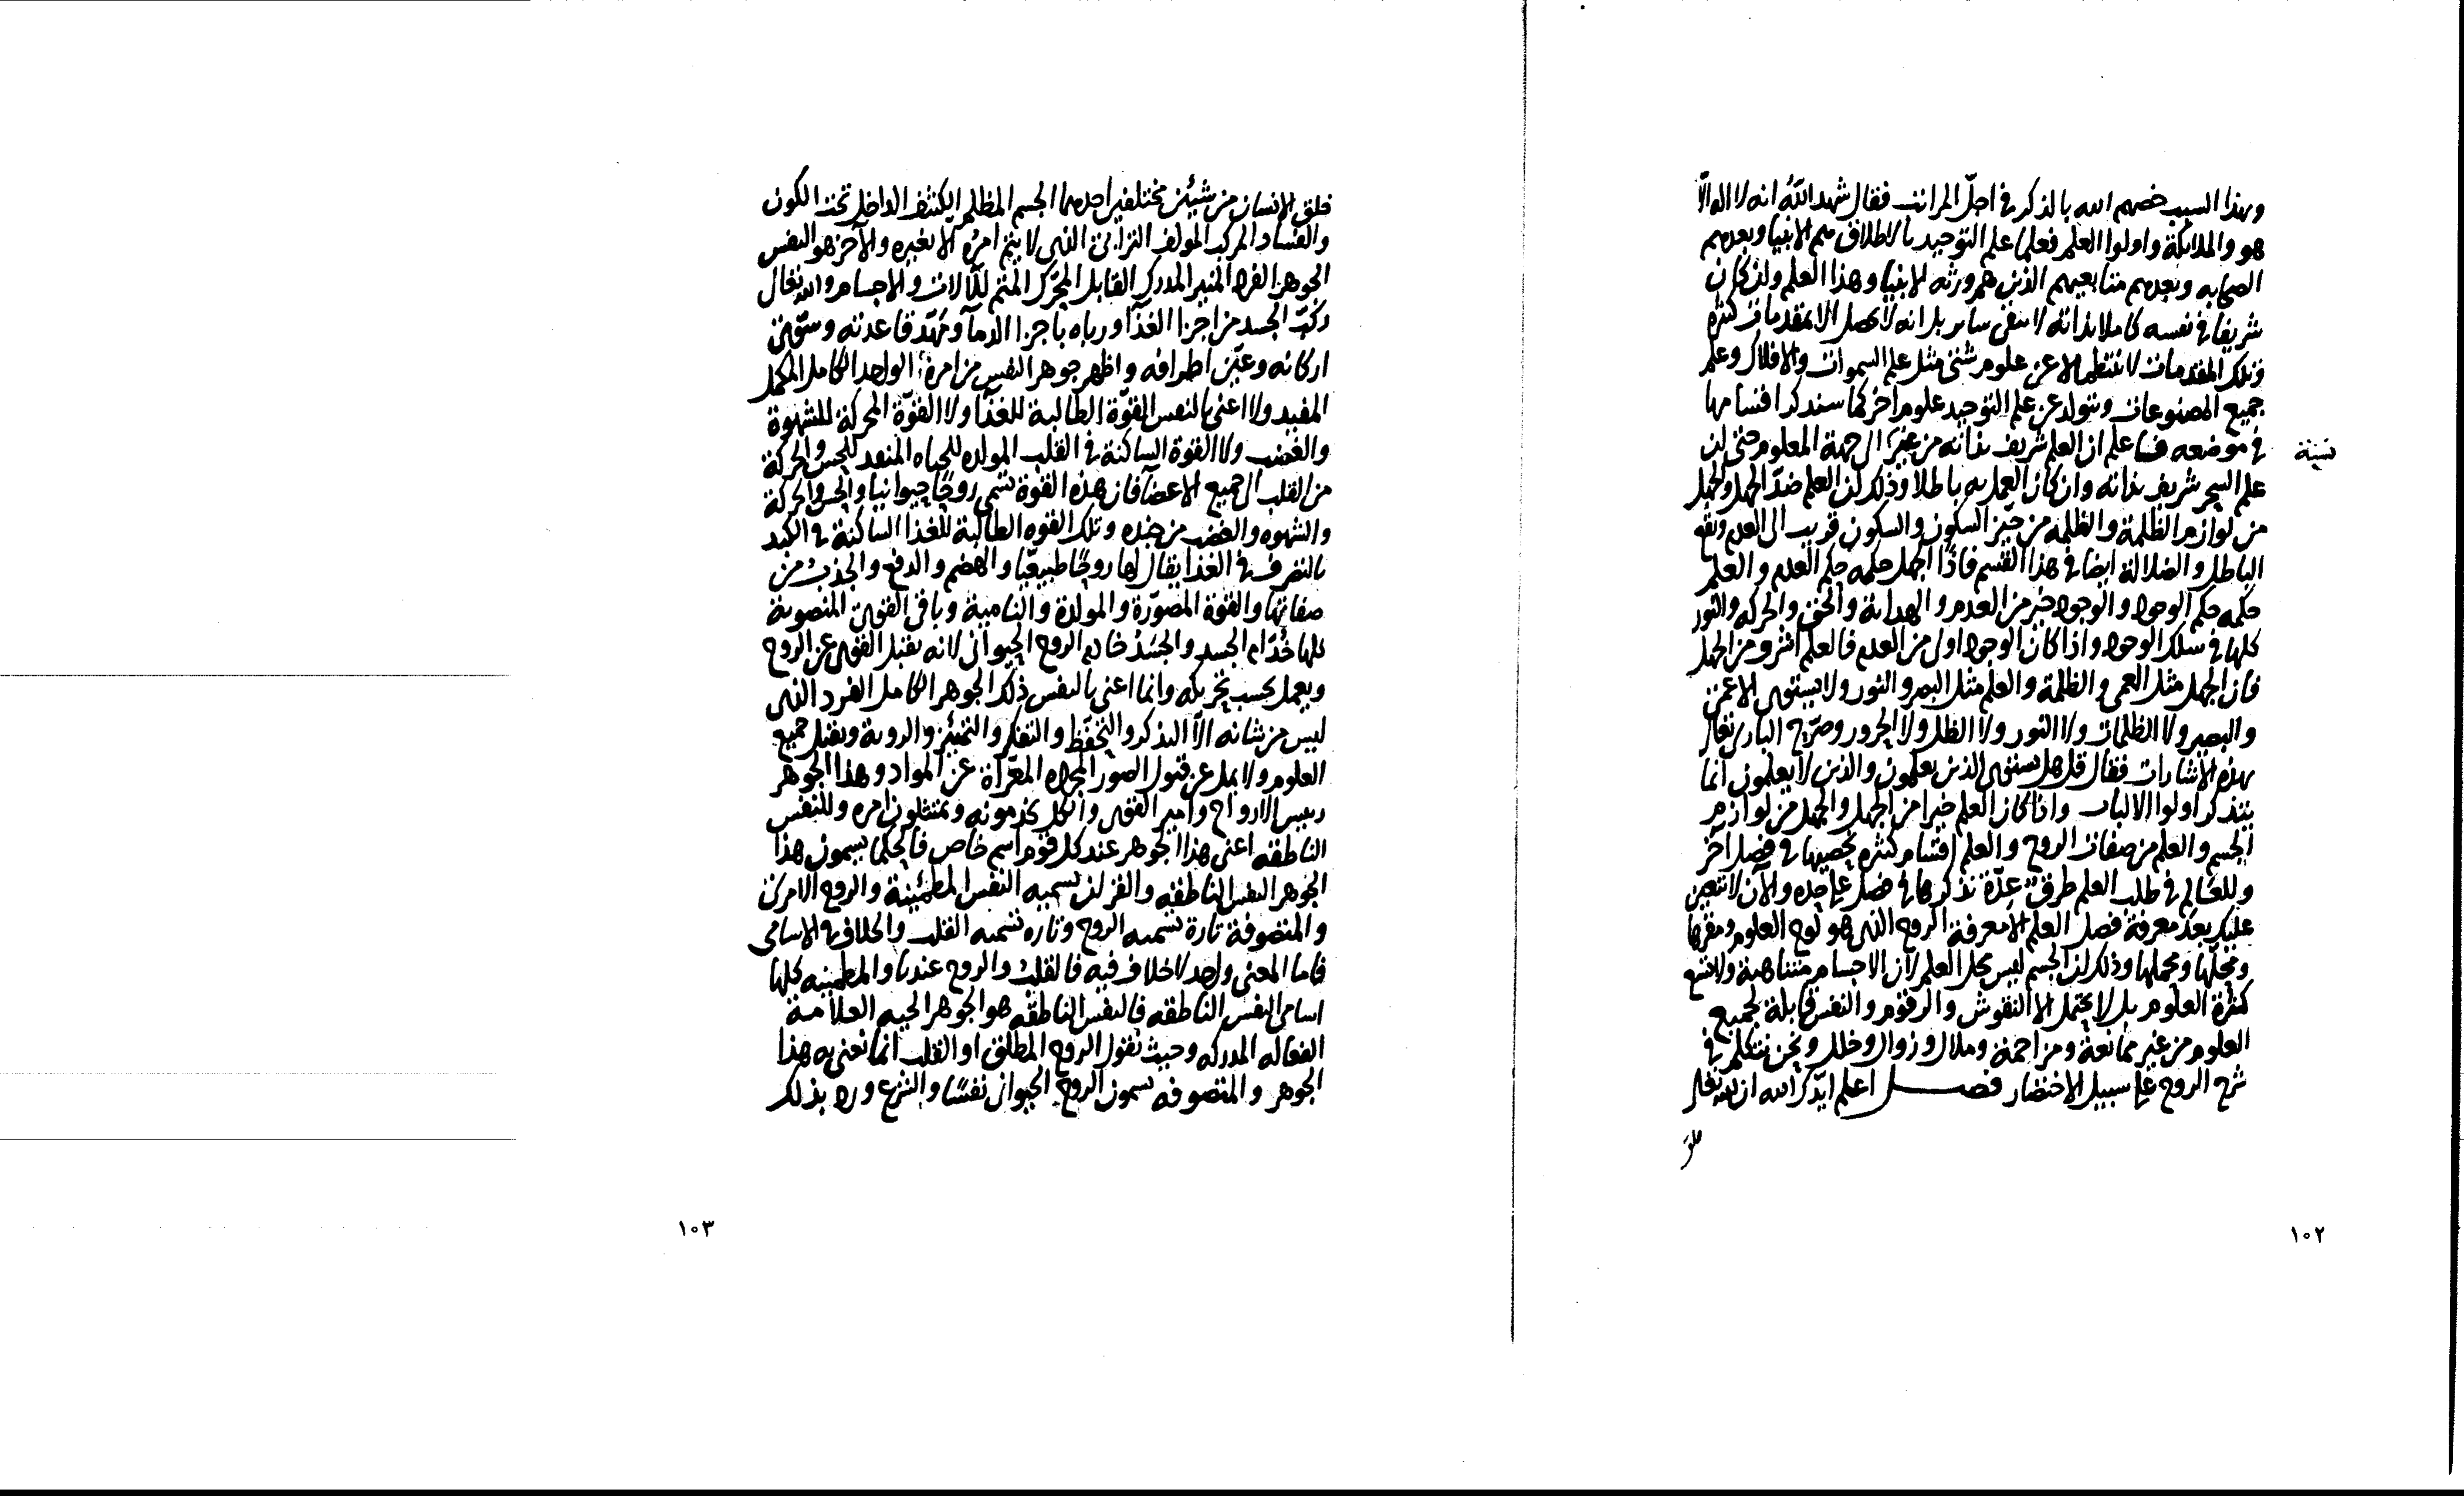 وبهذا السبب خصهم الله بالذكر في اجلّ المراتب فقال شهد اللّٰه انه لا اله الّا
هو والملائكة واولوا العلم فعلما علم التوحيد بالاطلاق هم الانبيا وبعدهم
الصحابه وبعدهم متابعيهم الذين هم ورثه الانبيا وهذا العلم وان كان
شريفا في نفسه كاملا بذاته لا ينفى ساير بل انه لا يحصل الا بمقدمات كثيره
وتلك المقدمات لا تنتظم الا عن علوم شتى مثل علم السموات والافلاك وعلم
جميع المصنوعات ويتولد عن علم التوحيد علوم اخر كما سنذكر اقسامها
في موضعه فاعلم ان العلم شريف بذاته من غير الى جهة المعلوم حتى ان
نسبة
علم السحر شريف بذاته وان كان العمل به باطلا وذلك ان العلم ضدّ الجهل والجهل
من لوازم الظلمة والظلمه من حيّز السكون والسكون قريب الى العدم ويقع
الباطل والضلالة ايضا في هذا القسم فاذًا الجهل حكمه حكم العدم والعلم
حكمه حكم الوجود والوجود خير من العدم والهداية والحق والحركه والنور
كلها في سلك الوجود واذا كان الوجود اولى من العدم فالعلم اشرف من الجهل
فان الجهل مثل العمى والظلمة والعلم مثل البصر والنور ولا يستوى الاعمى
والبصير ولا الظلمات ولا النور ولا الظل ولا الحرور وصرّح البارى تعالى
بهذه الاشارات فقال قل هل يستوى الذين يعلمون والذين لا يعلمون انما
يتذكر اولوا الالباب واذا كان العلم خيرا من الجهل والجهل من لوازم
الجسم والعلم من صفات الروح والعلم اقسام كثيره نحصيها في فصل آخر
وللعالم في طلب العلم طرق عدّة نذكرها في فصل على حده والآن لا يتعين
عليك بعد معرفة فضل العلم الا معرفة الروح الذى هو لوح العلوم ومقرها
ومحلّها ومحملها وذلك ان الجسم ليس محل العلم لان الاجسام متناهية ولا تسع
كثرة العلوم بل لا يحتمل الا النقوش والرقوم والنفس قابلة لجميع
العلوم من غير ممانعة ومزاحمة وملال وزوال وخلل ونحن نتكلم في
شرح الروح على سبيل الاختصار فصل اعلم ايّدك الله ان الله تعالى
خلق
١٠٢
خلق الانسان من شيئين مختلفين احدهما الجسم المظلم الكثيف الداخل تحت الكون
والفساد المركب المولف الترابي الذى لا يتم امرُه الا بغيره والآخر هو النفس
الجوهر الفرد المنير المدرك القابل المحرّك المتمّ للآلات والاجسام والله تعالى
ركّب الجسد من اجزا الغذآ ورباه باجزا الدمآ ومهّد قاعدته وسوّى
اركانه وعيّن اطرافه واظهر جوهر النفس من امره الواحد الكامل المكمل
المفيد ولا اعنى بالنفس القوّة الطالبة للغذآ ولا القوّة المحركة للشهوة
والغضب ولا القوة الساكنة في القلب المولده للحياه المنفد للحس والحركة
من القلب الى جميع الاعضآ فان هذه القوة تسمى روحًا حيوانيا والحس والحركة
والشهوه والغضب من جنده وتلك القوه الطالبة للغذا الساكنة في الكبد
بالتصرف في الغذا يقال لها روحًا طبيعيًا والهضم والدفع والجذب من
صفاتها والقوة المصوّرة والمولدة والنامية وباقى القوى المنصوبة
كلها خُدّام الجسد والجسَدُ خادم الروح الحيوانى لانه يقبل القوى عن الروح
ويعمل بحسب تحريكه وانما اعنى بالنفس ذلك الجوهر الكامل الفرد الذى
ليس من شانه الّا التذكر والتحفّظ والتفكر والتميّيز والروية ويقبل جميع
العلوم ولا يمل عن قبول الصور المجرده المعرّاة عن المواد وهذا الجوهر
رييس الارواح وامير القوى والكل يخدمونه ويمتثلون امره وللنفس
الناطقه اعنى هذا الجوهر عند كل قوم اسم خاص فالحكما يسمون هذا
الجوهر النفس الناطقه والقرآن تسميه النفس المطمئينة والروح الامرى
والمتصوفة تارة تسميه الروح وتاره تسميه القلب والخلاف في الاسامى
فاما المعنى واحد لا خلاف فيه فالقلب والروح عندنا والمطمينه كلها
اسامى النفس الناطقه فالنفس الناطقّه هو الجوهر الحيه العلّامة
الفعاله المدركه وحيث نقول الروح المطلق او القلب انما نعنى به هذا
الجوهر والمتصوفه يسمون الروح الحيوانى نفسًا والشرع ورد بذلك
١٠٣